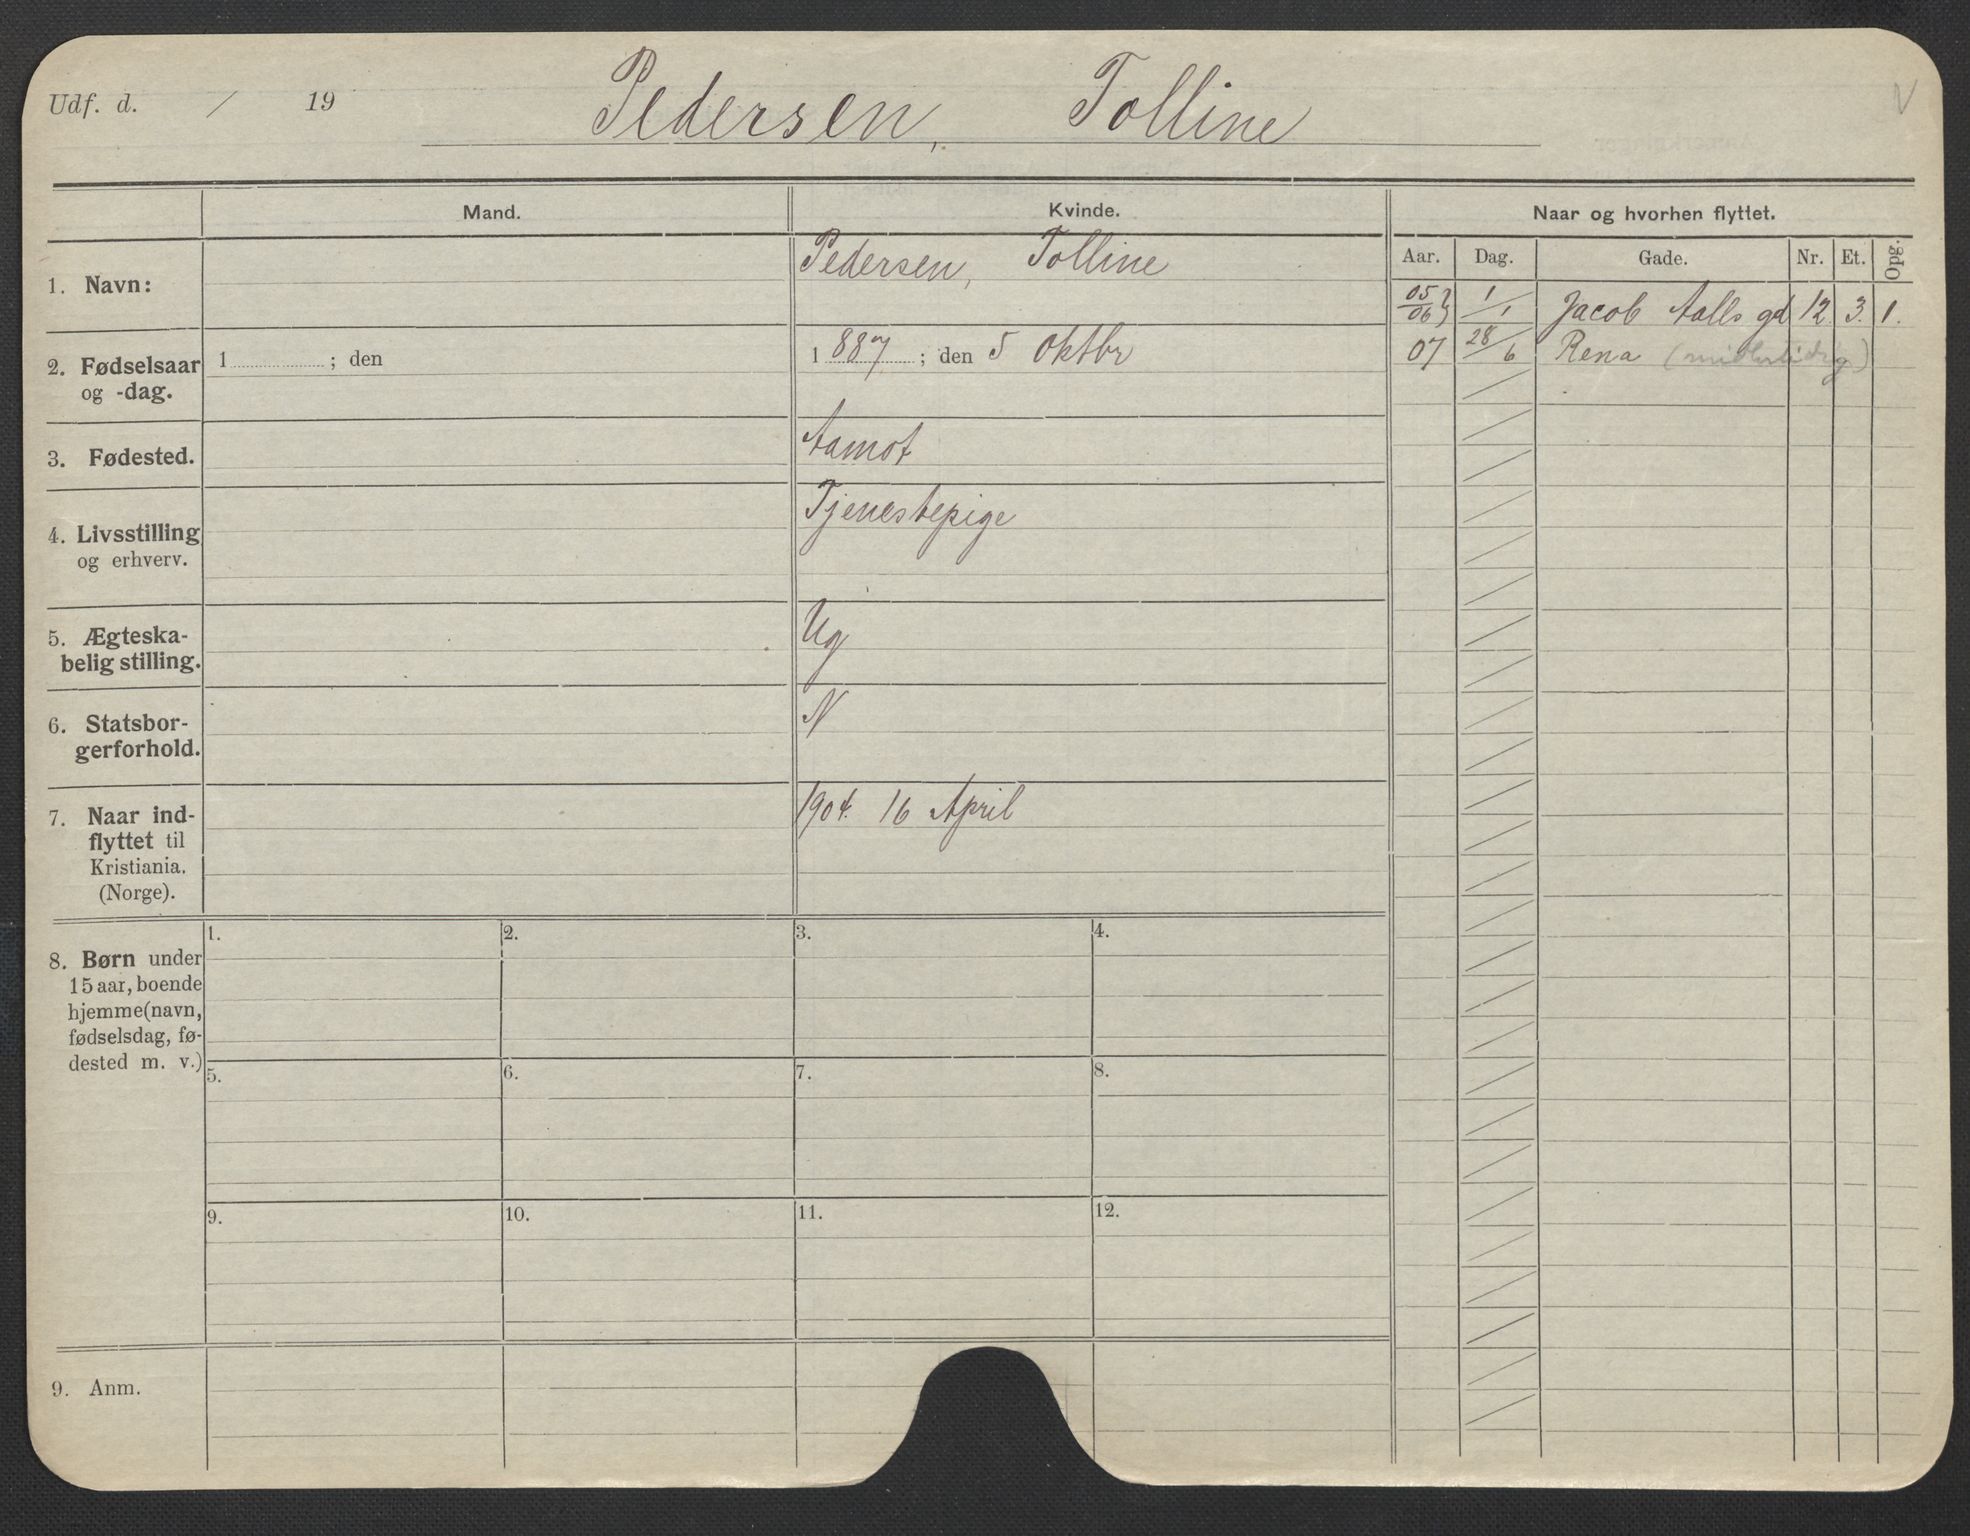 Udf. d. / 19 Pedersen, Tolline
Mand. Kvinde. Naar og hvorhen flyttet.
Aar. Dag. Gade. Nr. Et. Opg.
1. Navn: Pedersen, Tolline
05/06} 1/1 Jacob Aalls gd 12. 3. 1.
07 28/6 Rena (midlertidig)
2. Fødselsaar
og -dag.
1 ; den 1887 ; den 5 Oktbr
3. Fødested. Aamot
4. Livsstilling
og erhverv.
Tjenestepige
5. Ægteska-
belig stilling.
Ug
6. Statsbor-
gerforhold.
N
7. Naar ind-
flyttet til
Kristiania.
(Norge).
1904. 16 April
8. Børn under
15 aar, boende
hjemme(navn,
fødselsdag, fø-
dested m. v.)
1. 2. 3. 4.
5. 6. 7. 8.
9. 10. 11. 12.
9. Anm.